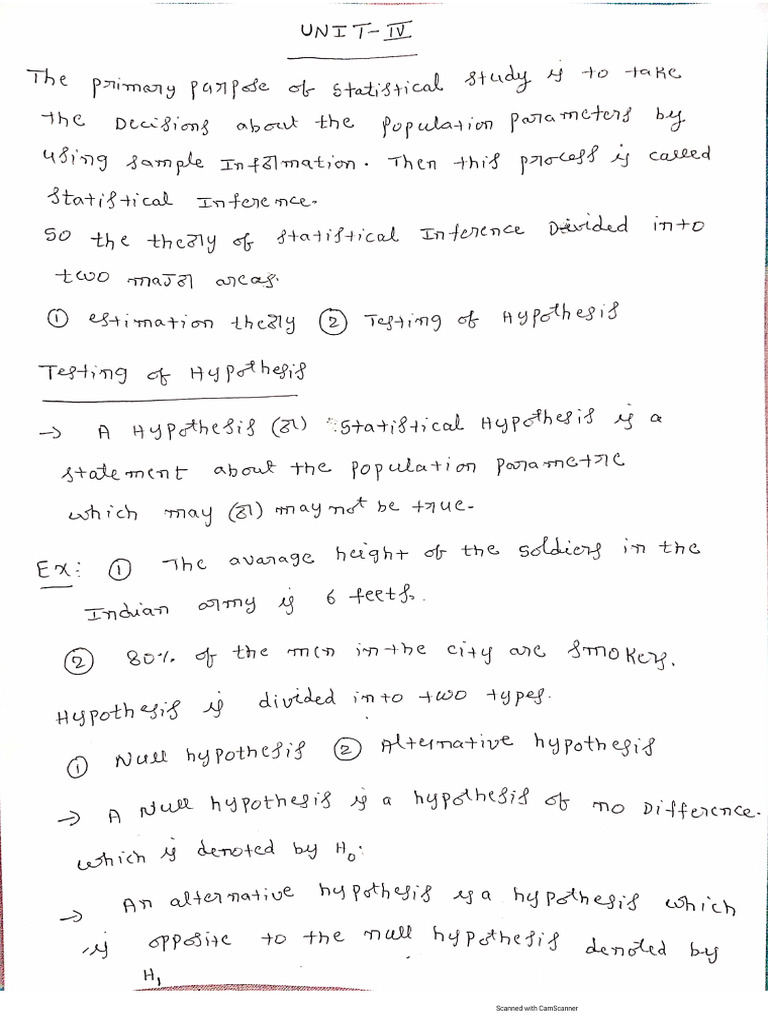 UNIT-IV
The primary purpose of statistical study is to take
the Decisions about the population parameters by
using sample Information. Then this process is called
statistical Inference.
so the theory of statistical Inference Divided into
two major areas.
① estimation theory ② Testing of Hypothesis
Testing of Hypothesis
→ A Hypothesis (or) statistical Hypothesis is a
statement about the population parametre
which may (or) may not be true.
Ex: ① The avarage height of the soldiers in the
Indian army is 6 feets.
② 80% of the men in the city are smokers.
Hypothesis is divided into two types.
① Null hypothesis ② Alternative hypothesis
→ A Null hypothesis is a hypothesis of no Difference.
which is denoted by H₀:
→ An alternative hypothesis is a hypothesis which
is opposite to the null hypothesis denoted by
H₁
Scanned with CamScanner